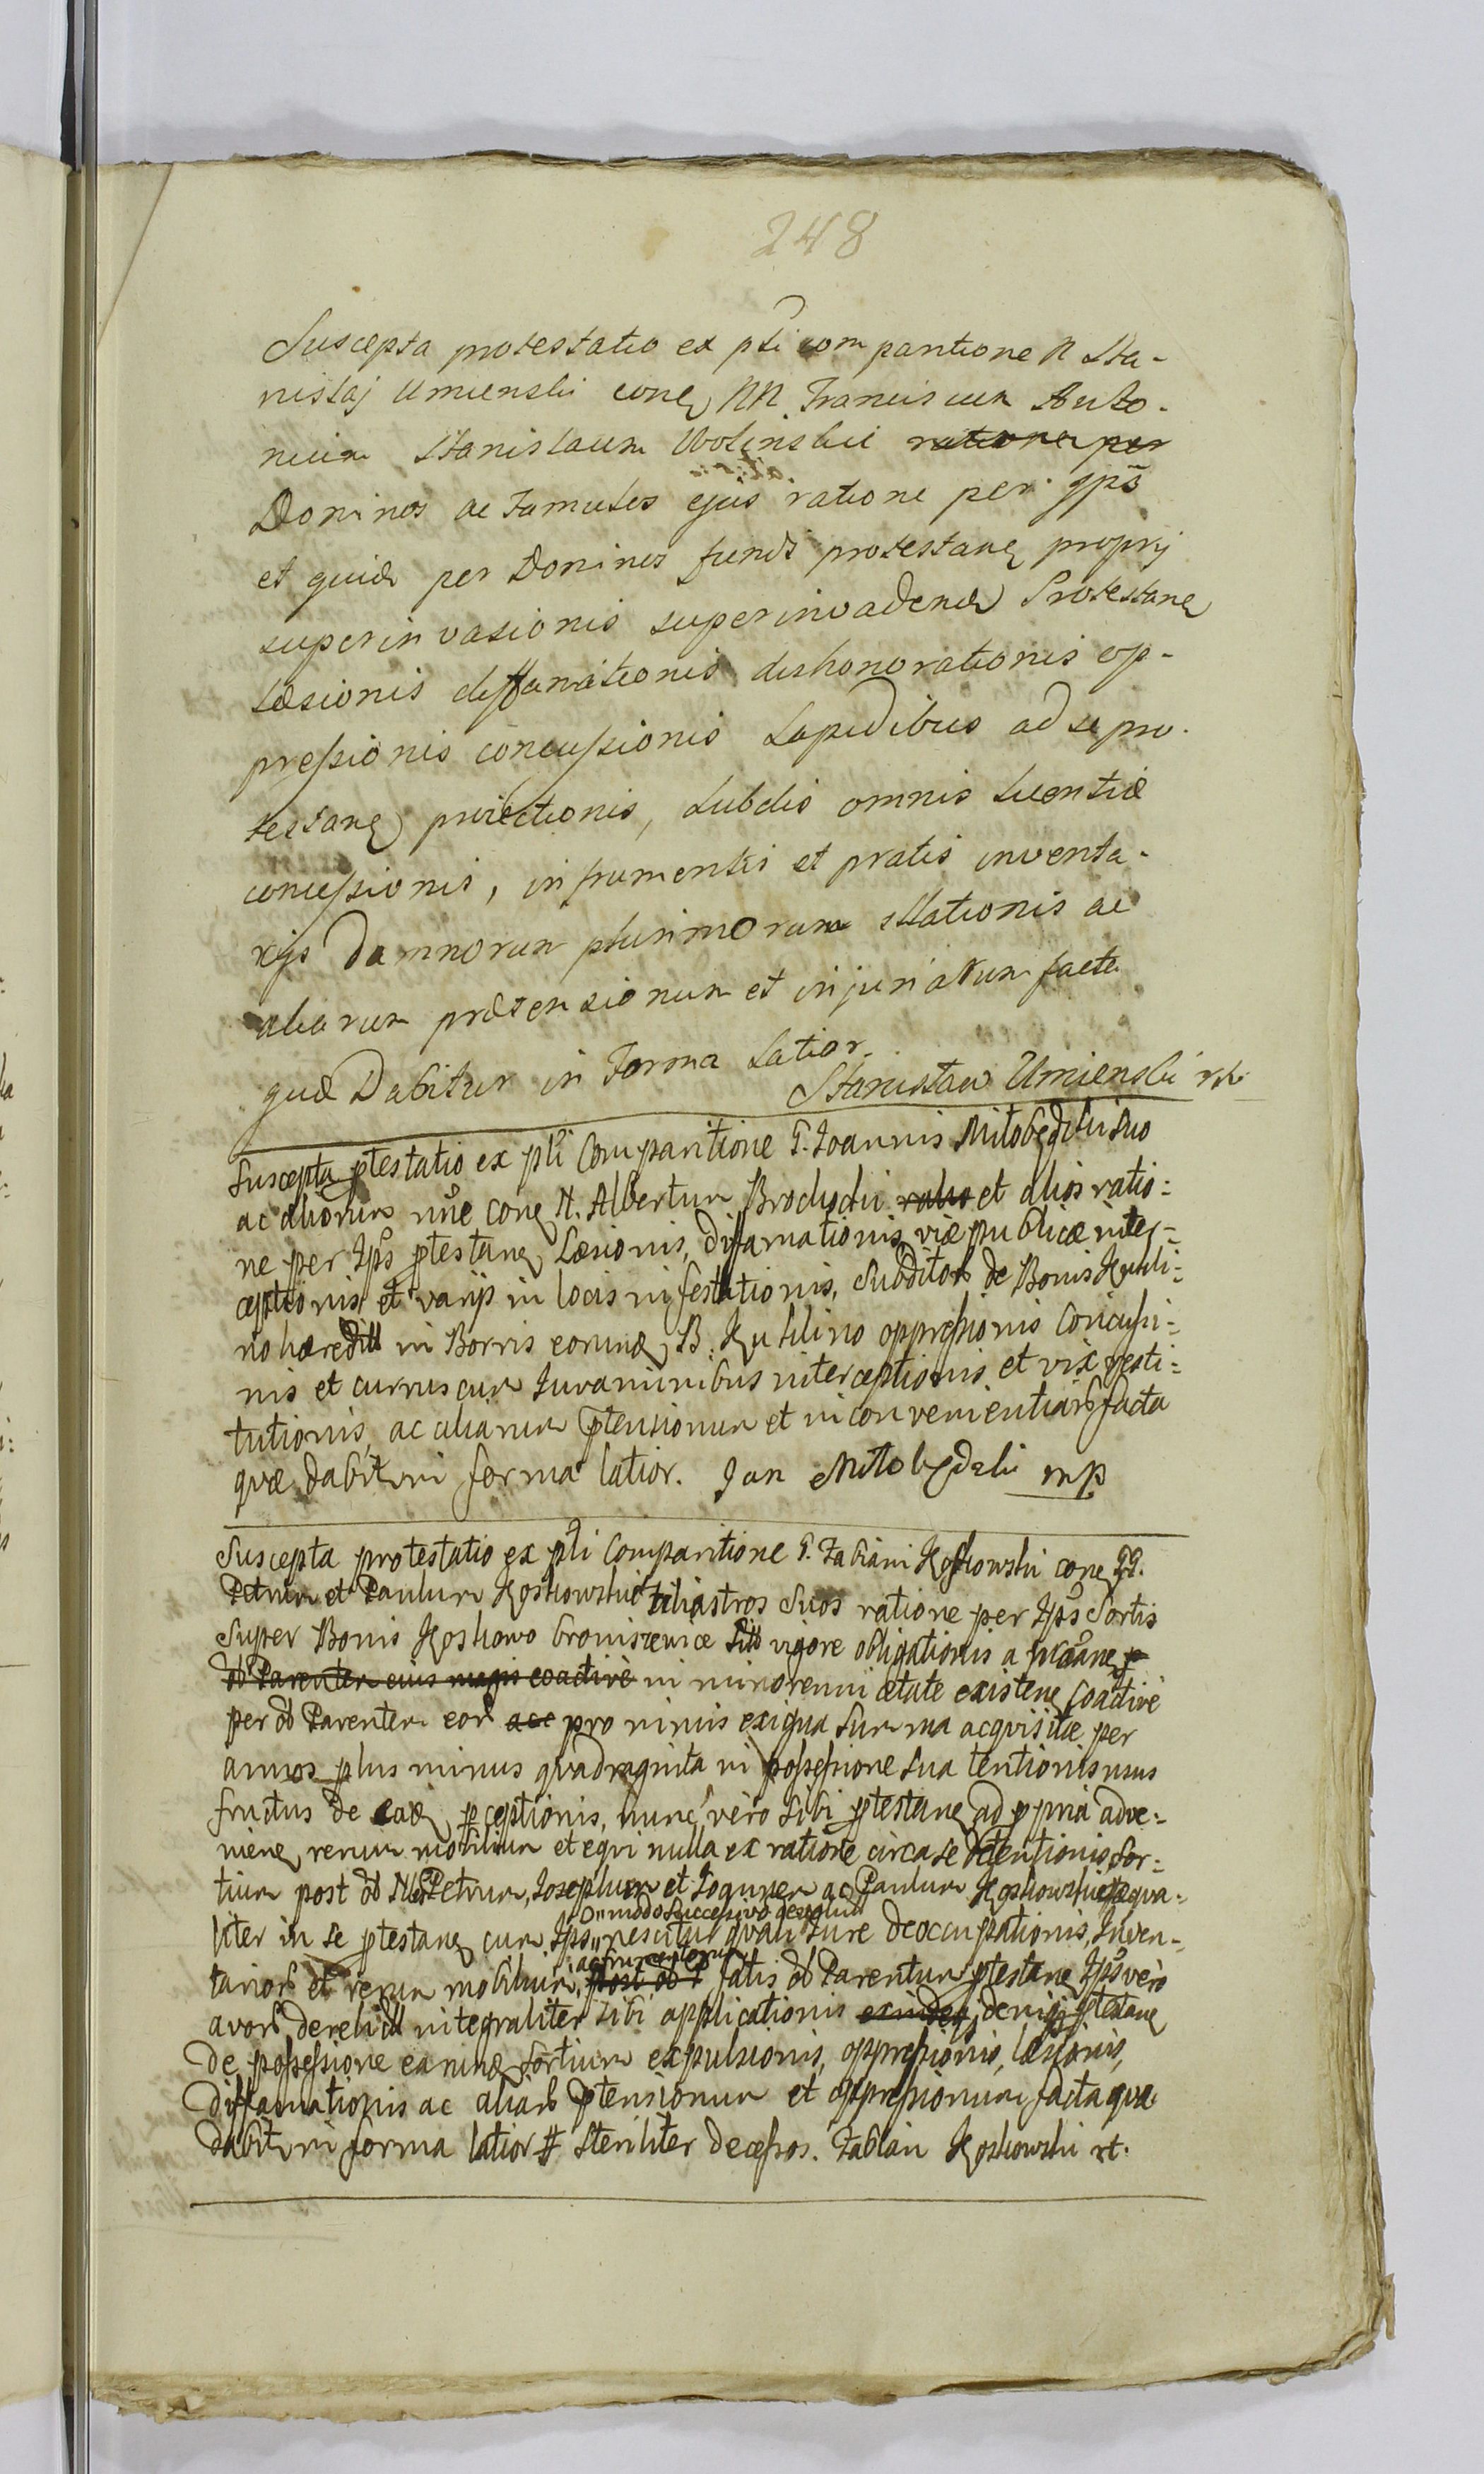 248
Suscepta protestatio ex pti comparitione N Sta-
nislaj Umienski conq NN Franciscum Anto-
nium Stanislaum Wolinskii ratione per
Dominos ac Famulos ejus ratione per jps
et quid per Dominos fundi protestanq proprij
superinvasionis superinvadend Protestanq
læsionis diffamationis dishonorationis op-
pressionis concussionis Lapidibus ad se pro-
testanq proiectionis, subdis omnis licentiæ
concessionis, in frumentis et pratis inventa-
rijs Damnorum plurimorum illationis ac
aliarum prætensionum et injuriarum facta
quæ Dabitur in Forma Latior.
Stanisław Umienski
Suscepta ptestatio ex pti Comparitione G. Joannis Miłobędzki suo
ac aliorum nne conq N. Albertum Brochocki et alios ratio=
ne per Jps ptestanq Læsionis, diffamationis viæ publicæ inter=
ceptionis et varijs in locis infestationis, Subditor de Bonis Kukli=
no hæredit in Borris eorund B. Kuklino oppressionis concussi=
nis et currus cum Juvaminibus interceptionis et vix resti=
tutionis, ac aliarum ptensionum et inconvenientiar facta
quæ dabit in forma latior. Jan Miłobędzki mp
Suscepta protestatio ex pti Comparitione G. Fabiani Koskowski conq GG.
Petrum et Paulum Koskowskie filiastros Suos ratione per Jps Sortis
Super Bonis Koskowo Broniszewice sitt vigore obligationis a
ob Parentem eius magis coactivè in minorenni ætate existenq Coactivè
per ob Parentem eor acc pro nimis exigua Summa acquisitæ per
annos plus minus quadraginta in possessione sua tentionis usus
fructus de ead pceptionis, nunc vero Sibi ptestanq ad ppria adve=
nienq rerum mobilium et eqvi nulla ex ratione circa se detentionis, Sor=
tium post ob NN Petrum, Josephum et ac Paulum Koskowskie æqua=
modo Successivo
liter in se ptestanq cum Jps nescitur quali Jure deoccupationis, Inven=
ac frumentorum
tarior et rerum mobilium, post ob fatis ob Parentum ptestanq Jps vero
avor derelict integraliter sibi applicationis exindeq; deniq ptestanq
de possessione earund Sortium expulsionis, oppressionis, læsionis,
diffamationis ac aliar ptensionum et oppressionum facta quæ
dabit in forma latior # steriliter decessos. Fabian Koskowski